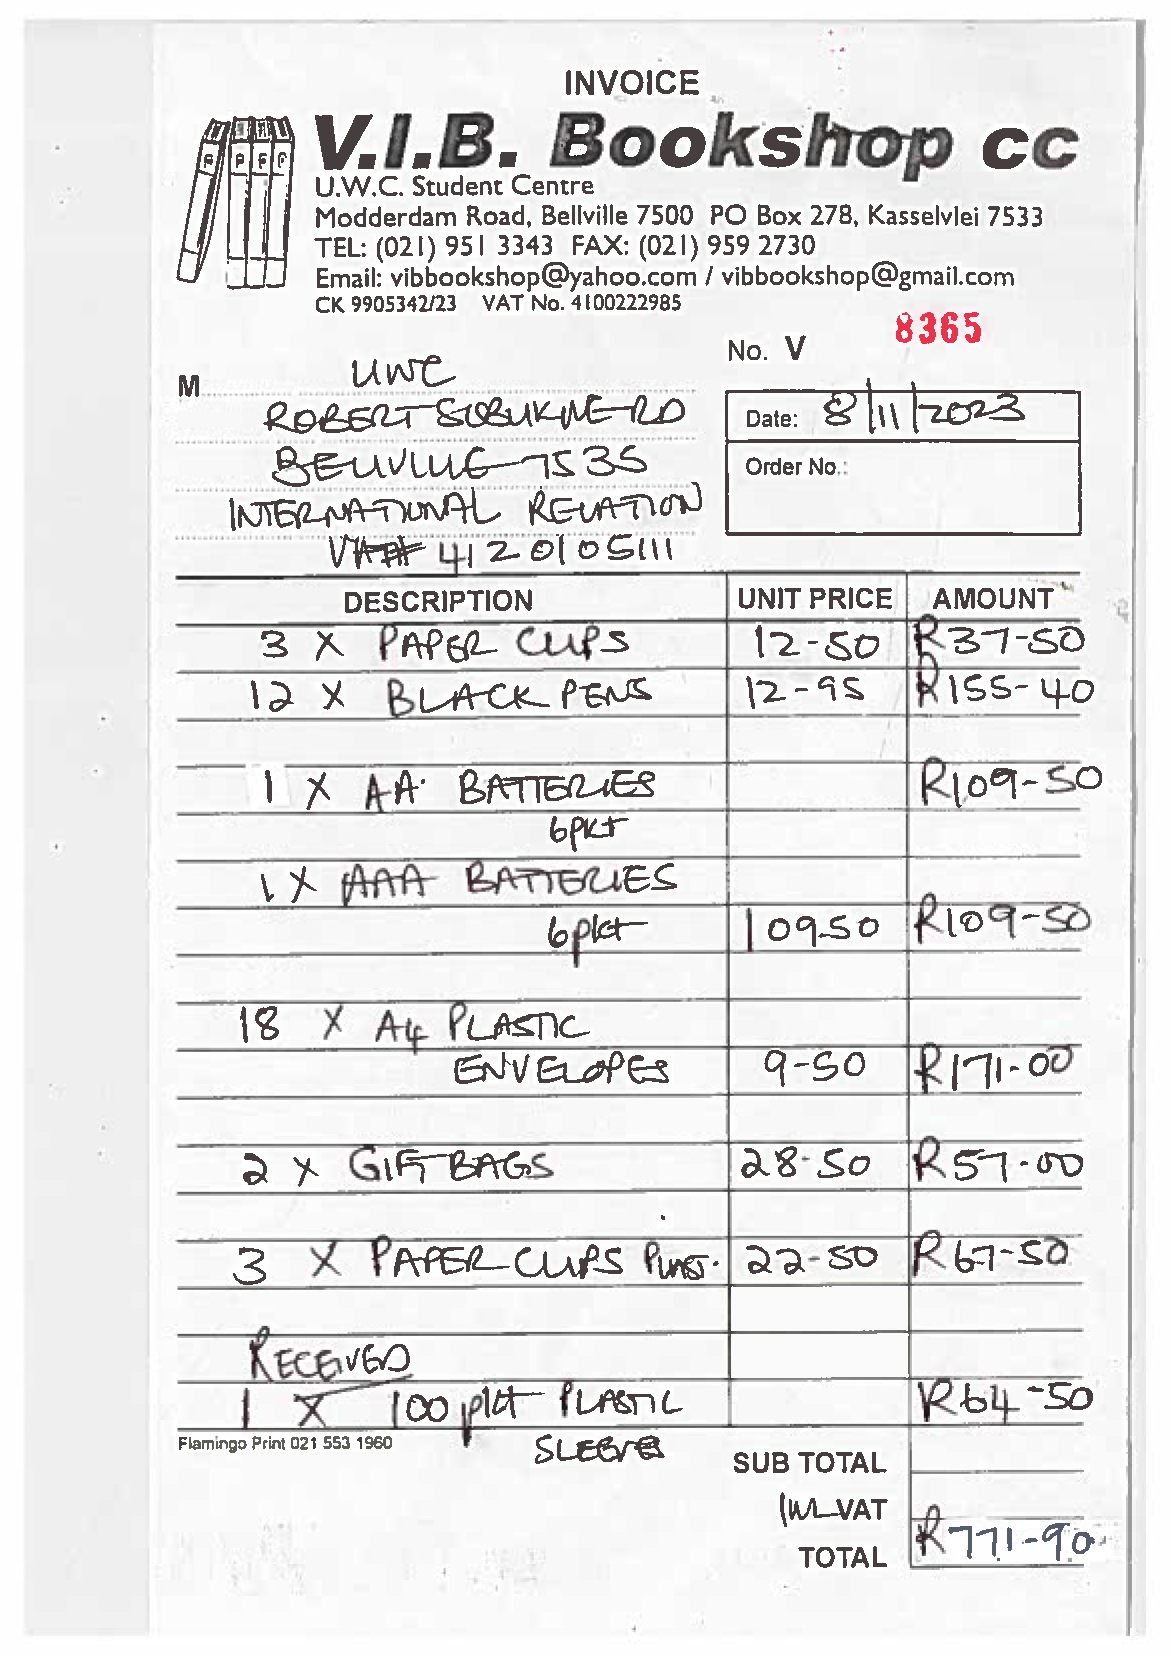 INVOICE
V.I.B. Bookshop cc
U.W.C. Student Centre
Modderdam Road, Bellville 7500 PO Box 278, Kasselvlei 7533
TEL: (021) 951 3343 FAX: (021) 959 2730
Email: vibbookshop@yahoo.com / vibbookshop@gmail.com
CK 9905342/23 VAT No. 4100222985
No. V 8365
M UWC
ROBERT SOBUKWE RD
Date: 8/11/2023
BELLVILLE 7535
Order No.:
INTERNATIONAL RELATION
VAT# 4120105111
DESCRIPTION UNIT PRICE AMOUNT
3 X PAPER CLIPS 12-50 R37-50
12 X BLACK PENS 12-95 R155-40
1 X AA BATTERIES R109-50
6pkt
1 X AAA BATTERIES
6pkt 109-50 R109-50
18 X A4 PLASTIC
ENVELOPES 9-50 R171-00
2 X GIFT BAGS 28-50 R57-00
3 X PAPER CLIPS PLAST. 22-50 R67-50
RECEIVED
1 X 100 pkt PLASTIC R64-50
Flamingo Print 021 553 1960
SLEEVE
SUB TOTAL
INCL VAT
TOTAL R771-90